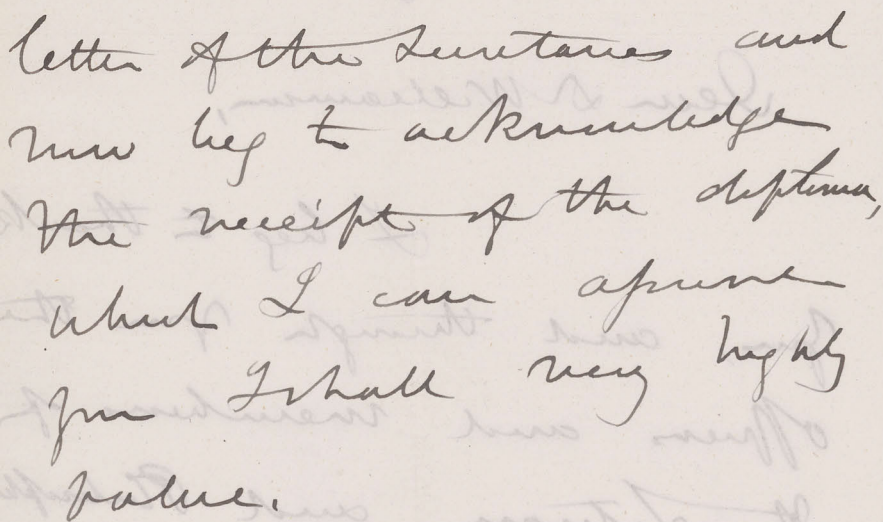 letter of the Secretaries and
now beg to acknowledge
the receipt of the diploma,
which I can assure
you I shall very highly
value.